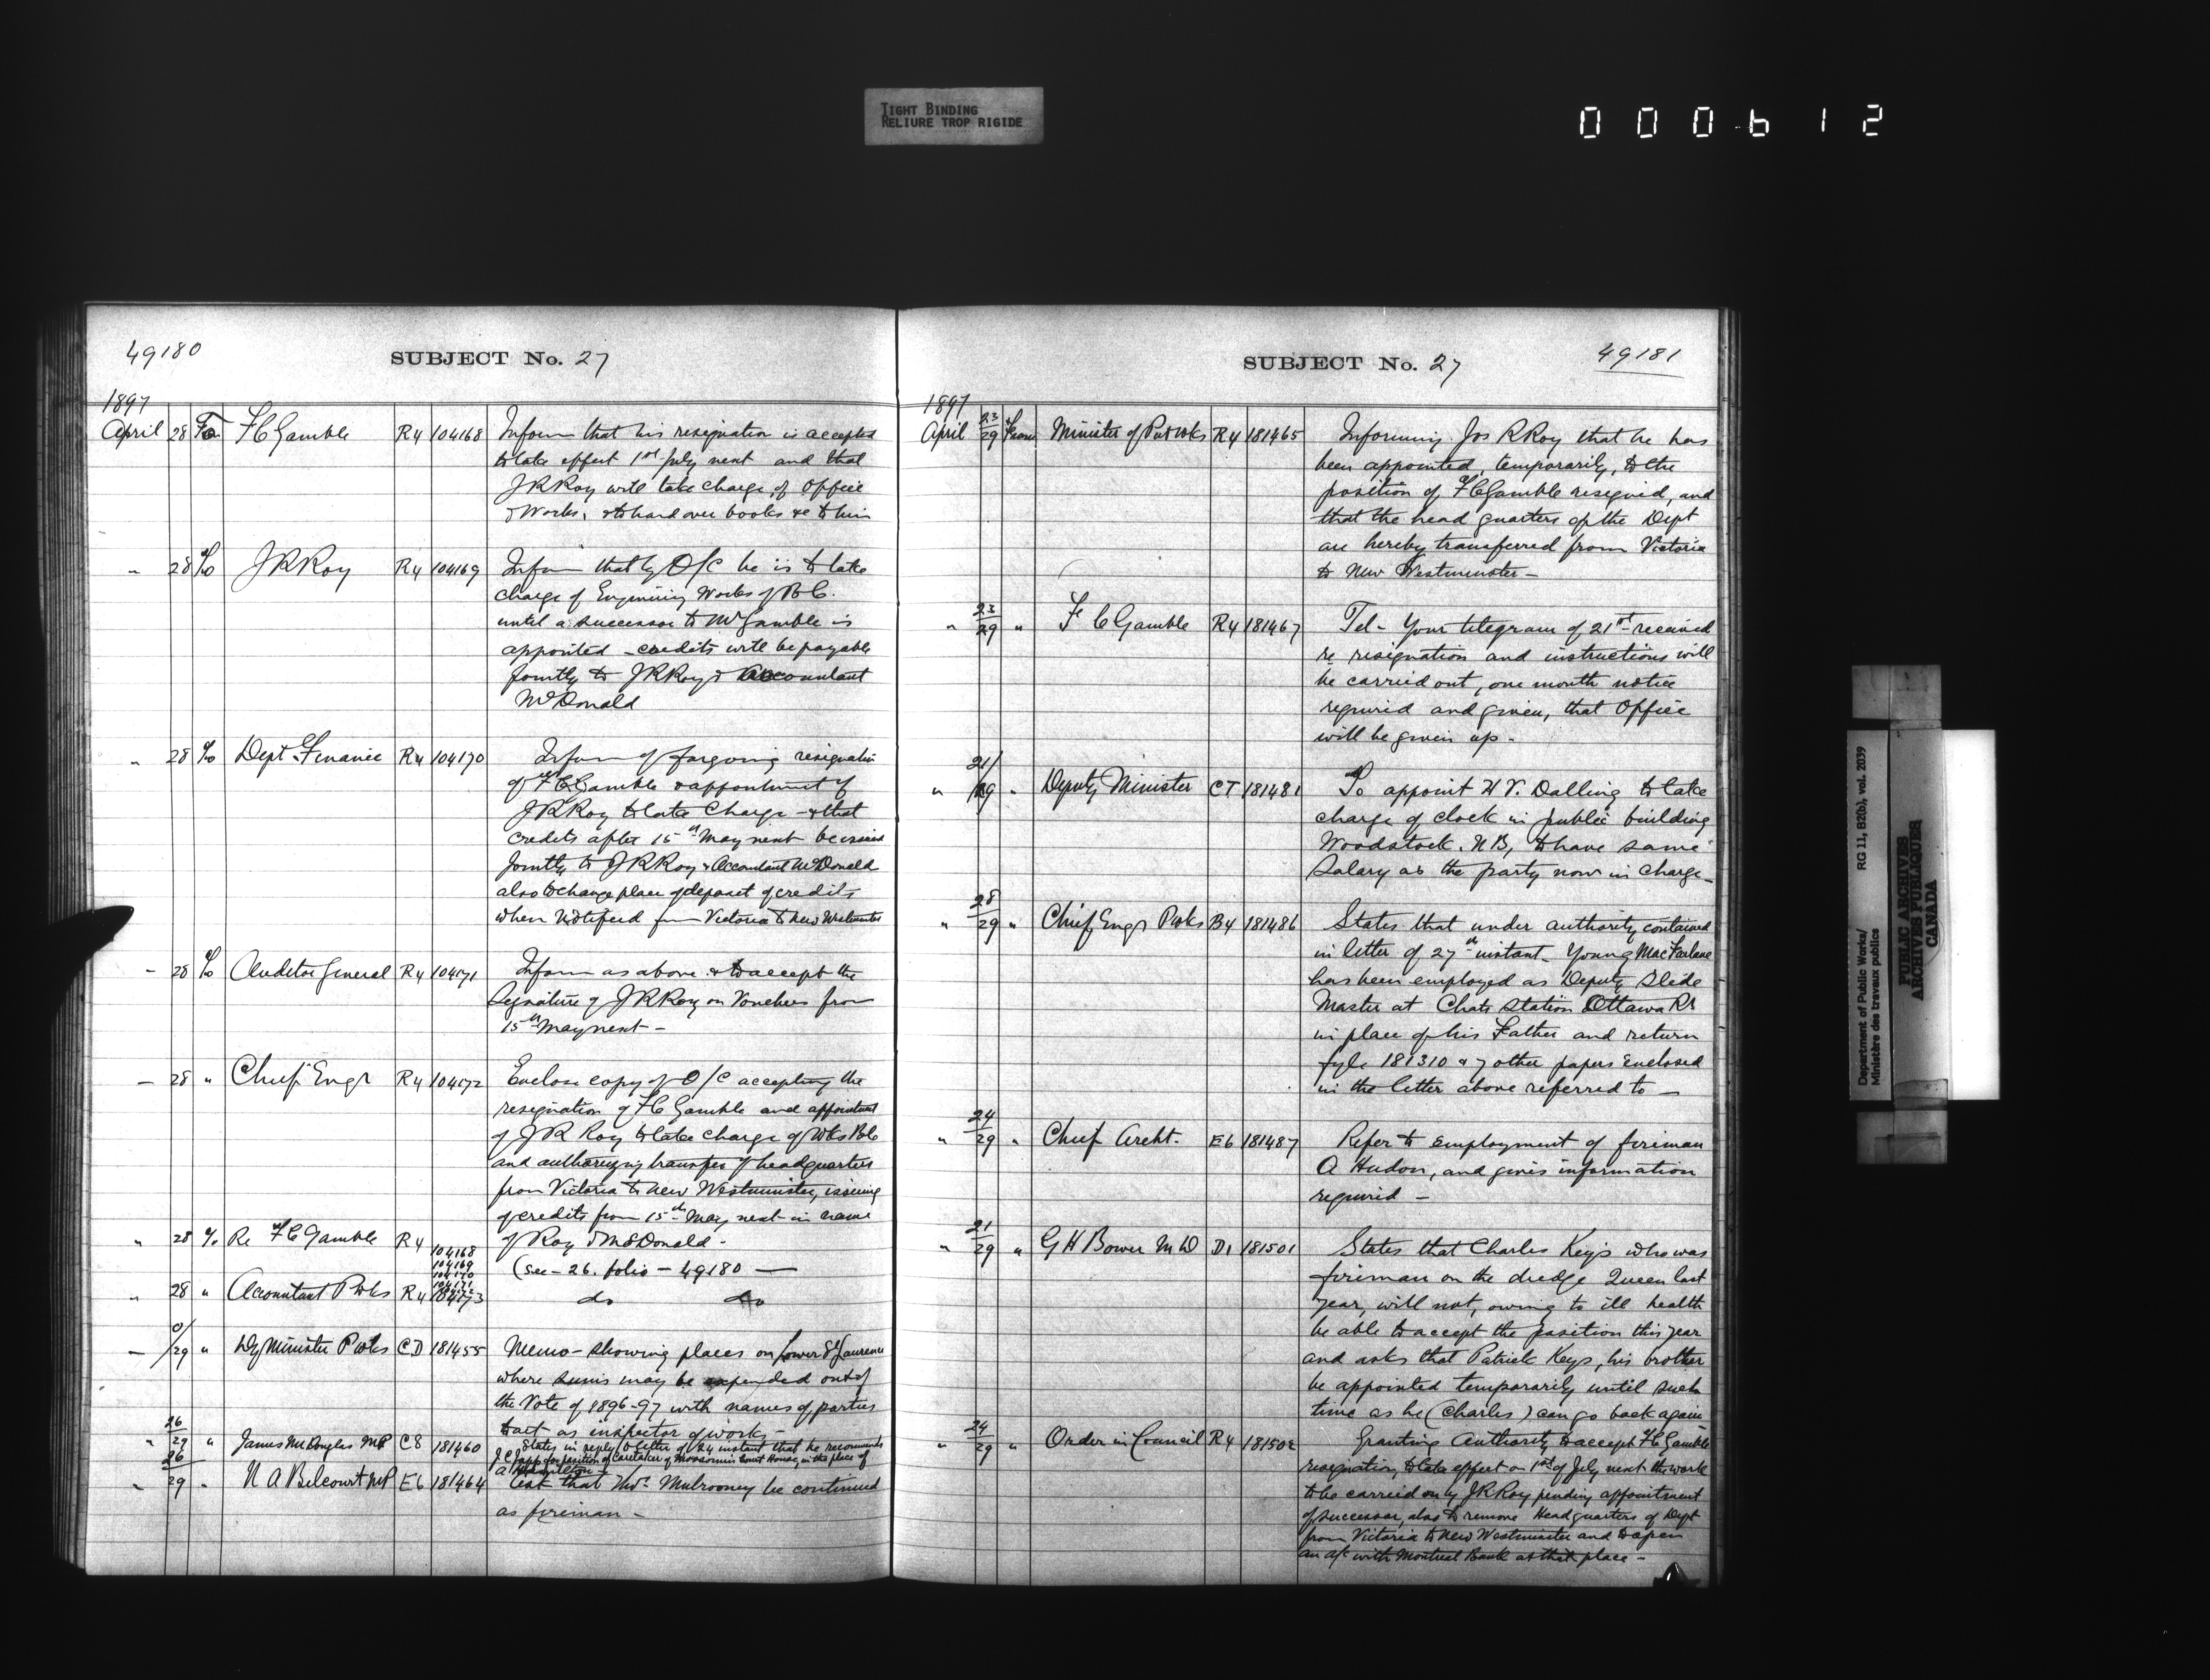 TIGHT BINDING
RELIURE TROP RIGIDE
000612
49180
SUBJECT No. 27
1897
April 28 To F C Gamble R4 104168 Inform that his resignation is accepted
to take effect 1st July next and that
J R Roy will take charge of Office
& Works, & to hand over books &c to him
" 28 To J R Roy R4 104169 Inform that by O/C he is to take
charge of Engineering Works of B C.
until a successor to Mr Gamble is
appointed - credits will be payable
jointly to J R Roy & Accountant
McDonald
" 28 To Dept Finance R4 104170 Inform of forgoing resignation
of F C Gamble & appointment of
J R Roy to take Charge - & that
credits after 15th May next be issued
jointly to J R Roy & Accountant McDonald
also to change place of deposit of credits
when notified from Victoria to New Westminster
- 28 To Auditor General R4 104171 Inform as above & to accept the
Signature of J R Roy on Vouchers from
15th May next -
- 28 " Chief Engr R4 104172 Enclose copy of O/C accepting the
resignation of F C Gamble and appointment
of J R Roy to take charge of Wks B C
and authorizing transfer of headquarters
from Victoria to New Westminster, issuing
of credits from 15th May next in name
of Roy & McDonald -
" 28 To Re F C Gamble R4 104168
104169
104170
104171
104172
(see - 26. folio - 49180 —
" 28 " Accountant P Wks R4 104173 do do
- 0/29 " Dy Minister P Wks CD 181455 Memo - showing places on Lower St Laurence
where sums may be expended out of
the Vote of 1896-97 with names of parties
to act as inspector of works -
" 26/29 " James McDouglas MP C8 181460 States in reply to letter of 24 instant that he recommends
J C for position of Caretaker of Moosomin Court House, in the place of
A Hamilton -
" 26/29 " N A Belcourt MP E6 181464 Ask that Thos. Mulrooney be continued
as fireman -
49181
SUBJECT No. 27
1897
April 23/29 From Minister of Pub Wks R4 181465 Informing Jos R Roy that he has
been appointed, temporarily, to the
position of F C Gamble resigned, and
that the head quarters of the Dept
are hereby transferred from Victoria
to New Westminster -
" 23/29 " F C Gamble R4 181467 Tel - Your telegram of 21st received
re resignation and instructions will
be carried out, one month notice
required and given, that Office
will be given up -
" 21/29 " Deputy Minister CT 181481 To appoint H V. Dalling to take
charge of clock in public building
Woodstock. N B, to have same
Salary as the party now in charge -
" 28/29 " Chief Engr P Wks B4 181486 States that under authority contained
in letter of 27th instant - Young MacFarlane
has been employed as Deputy Slide
Master at Chats Station Ottawa Rr
in place of his Father and return
fyle 181310 & 7 other papers enclosed
in the letter above referred to -
" 24/29 " Chief Archt. E6 181487 Refer to employment of fireman
A Hudon, and gives information
required -
" 21/29 " G H Bower M D D1 181501 States that Charles Keys who was
fireman on the dredge Queen last
year, will not, owing to ill health
be able to accept the position this year
and asks that Patrick Keys, his brother
be appointed temporarily until such
time as he (Charles) can go back again -
" 24/29 " Order in Council R4 181502 Granting Authority to accept F C Gamble
resignation, to take effect on 1st of July next the work
to be carried on by J R Roy pending appointment
of successor, also to remove Headquarters of Dept
from Victoria to New Westminster and to open
an a/c with Montreal Bank at that place -
Department of Public Works/ RG 11, B2(b), vol. 2039
Ministère des travaux publics
PUBLIC ARCHIVES
ARCHIVES PUBLIQUES
CANADA